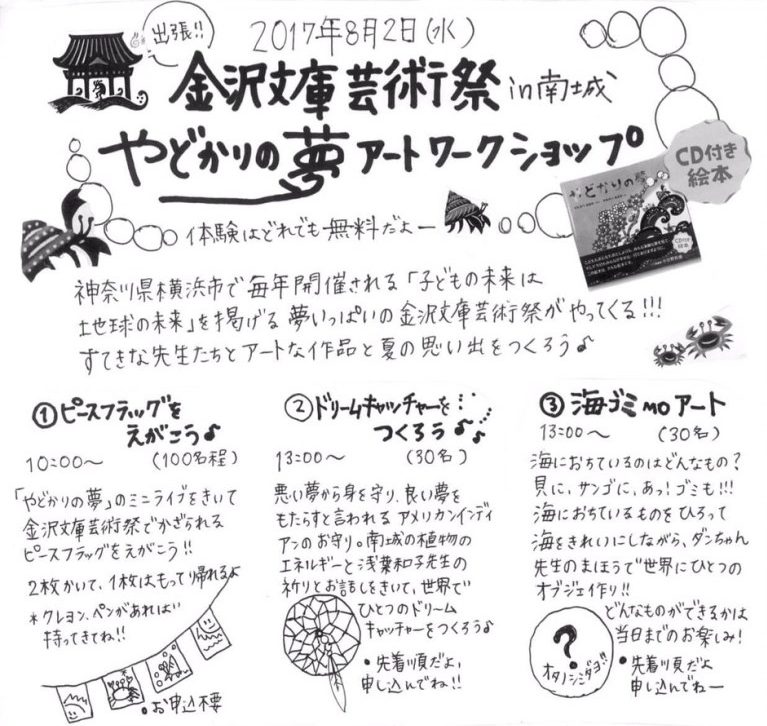 出張!!
2017年8月2日(水)
金沢文庫芸術祭 in南城
やどかりの夢アートワークショップ
CD付き
絵本
やどかりの夢
体験はどれでも無料だよー
神奈川県横浜市で毎年開催される「子どもの未来は
地球の未来」を掲げる夢いっぱいの金沢文庫芸術祭がやってくる!!!
すてきな先生たちとアートな作品と夏の思い出をつくろう♪
①ピースフラッグを
えがこう♪
10:00〜 (100名程)
「やどかりの夢」のミニライブをきいて
金沢文庫芸術祭でかざられる
ピースフラッグをえがこう!!
2枚かいて、1枚はもって帰れるよ
*クレヨン、ペンがあれば
持ってきてね!!
・お申込不要
②ドリームキャッチャーを
つくろう♪
13:00〜 (30名)
悪い夢から身を守り、良い夢を
もたらすと言われるアメリカンインディ
アンのお守り。南城の植物の
エネルギーと浅葉和子先生の
祈りとお話しをきいて、世界で
ひとつのドリーム
キャッチャーをつくろう♪
・先着順だよ、
申し込んでね!!
③海ゴミmoアート
13:00〜 (30名)
海におちているのはどんなもの?
貝に、サンゴに、あっ!ゴミも!!!
海におちているものをひろって
海をきれいにしながら、ダンちゃん
先生のまほうで世界にひとつの
オブジェ作り!!
どんなものができるかは
当日までのお楽しみ!
?
オタノシミダヨ!!
・先着順だよ
申し込んでねー